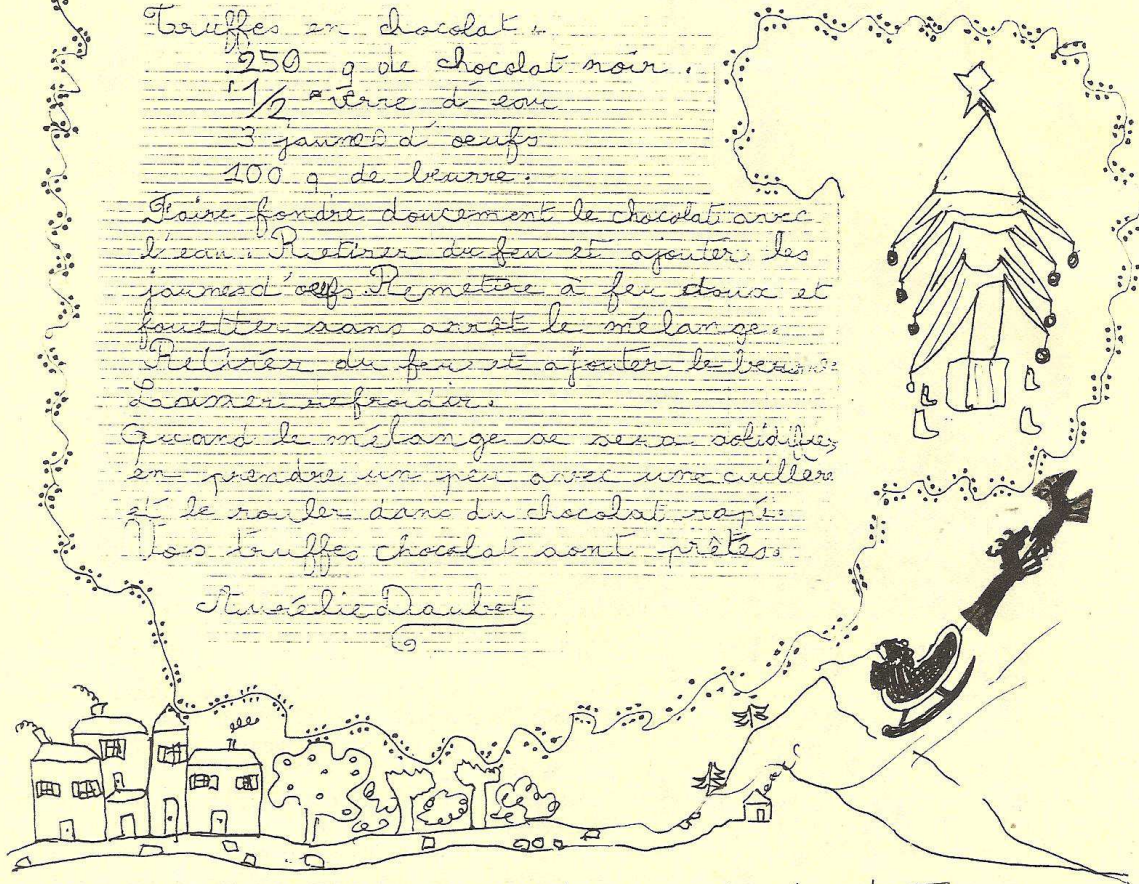 Truffes en chocolat.
250 g de chocolat noir.
1/2 verre d'eau
3 jaunes d'oeufs
100 g de beurre.
Faire fondre doucement le chocolat avec
l'eau. Retirer du feu et ajouter les
jaunes d'oeufs. Remettre à feu doux et
fouetter sans arrêt le mélange.
Retirer du feu et ajouter le beurre
Laisser refroidir.
Quand le mélange se sera solidifier
en prendre un peu avec une cuillère
et le rouler dans du chocolat rapé.
Vos truffes chocolat sont prêtes.
Aurélie Daubet